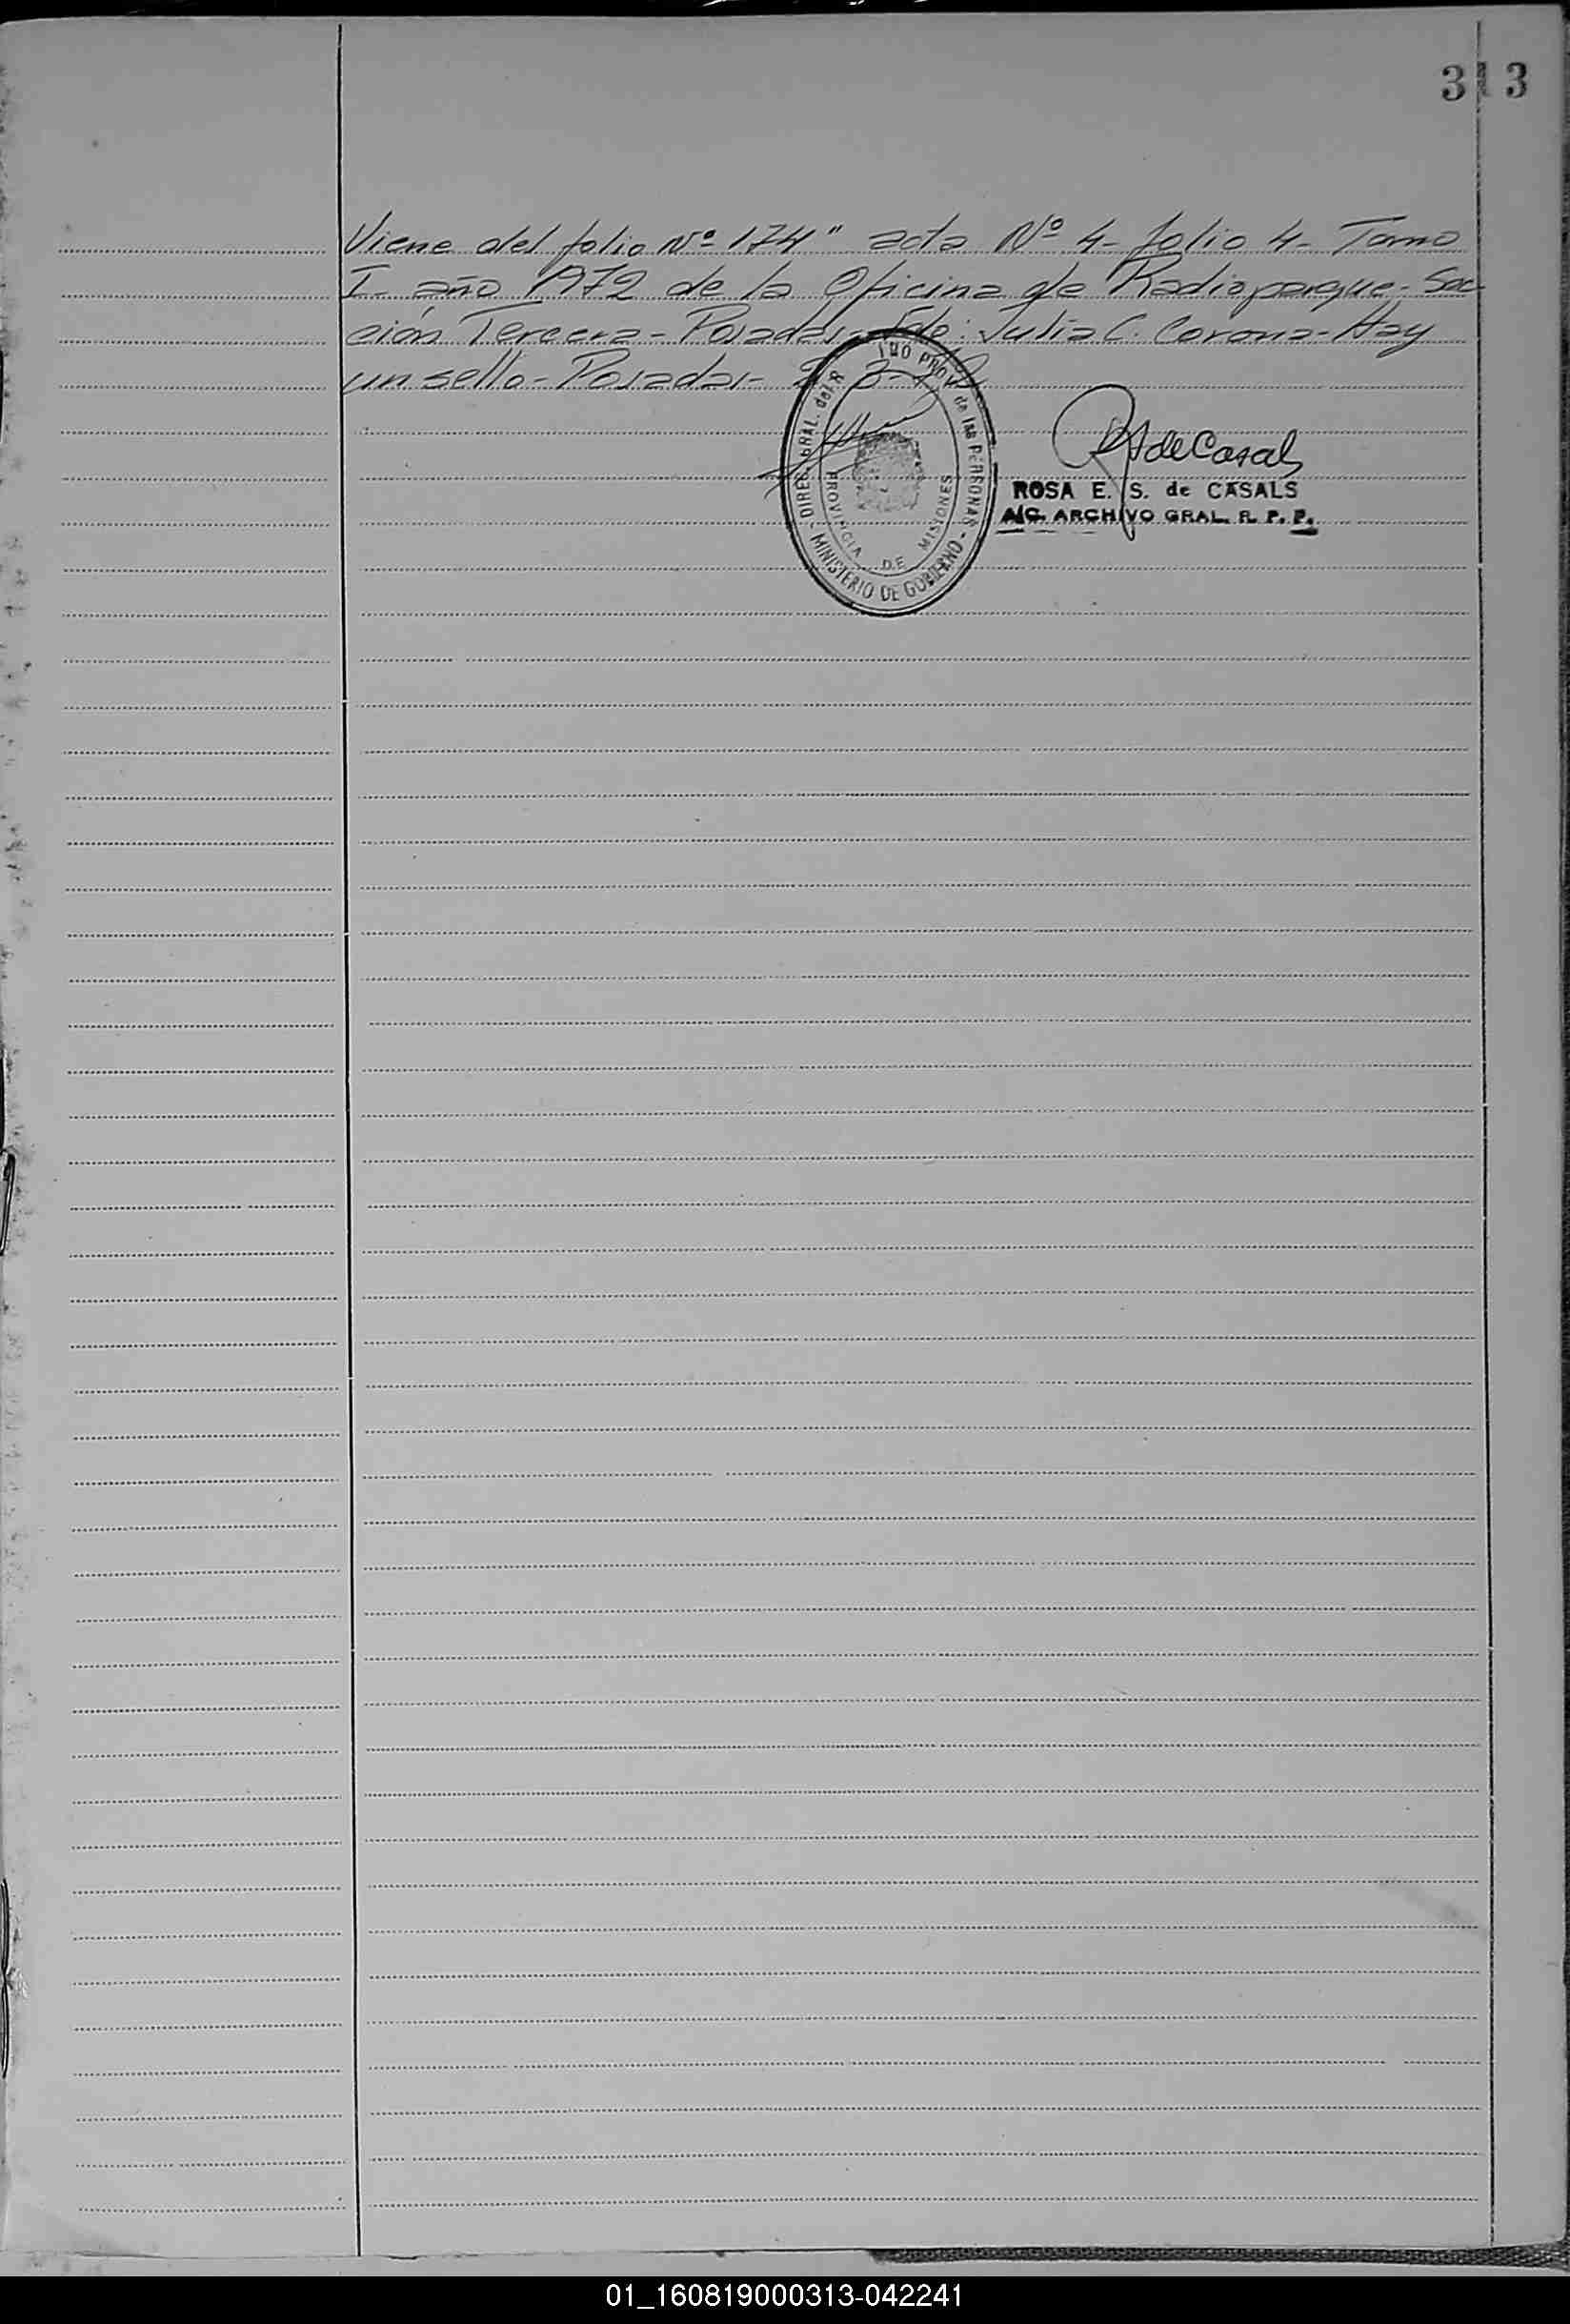 313
Viene del folio Nº 174" acta Nº 4- folio 4- Tomo
I- año 1972 de la Oficina de Radioparque- Sec
ción Tercera- Posadas- Fdo: Julia C. Corona- Hay
un sello- Posadas-
DIREC. GRAL. del R TRO PROV. de las PERSONAS
PROVINCIA DE MISIONES
- MINISTERIO DE GOBIERNO -
de Casals
ROSA E. S. de CASALS
A/C. ARCHIVO GRAL. R. P. P.
01_160819000313-042241